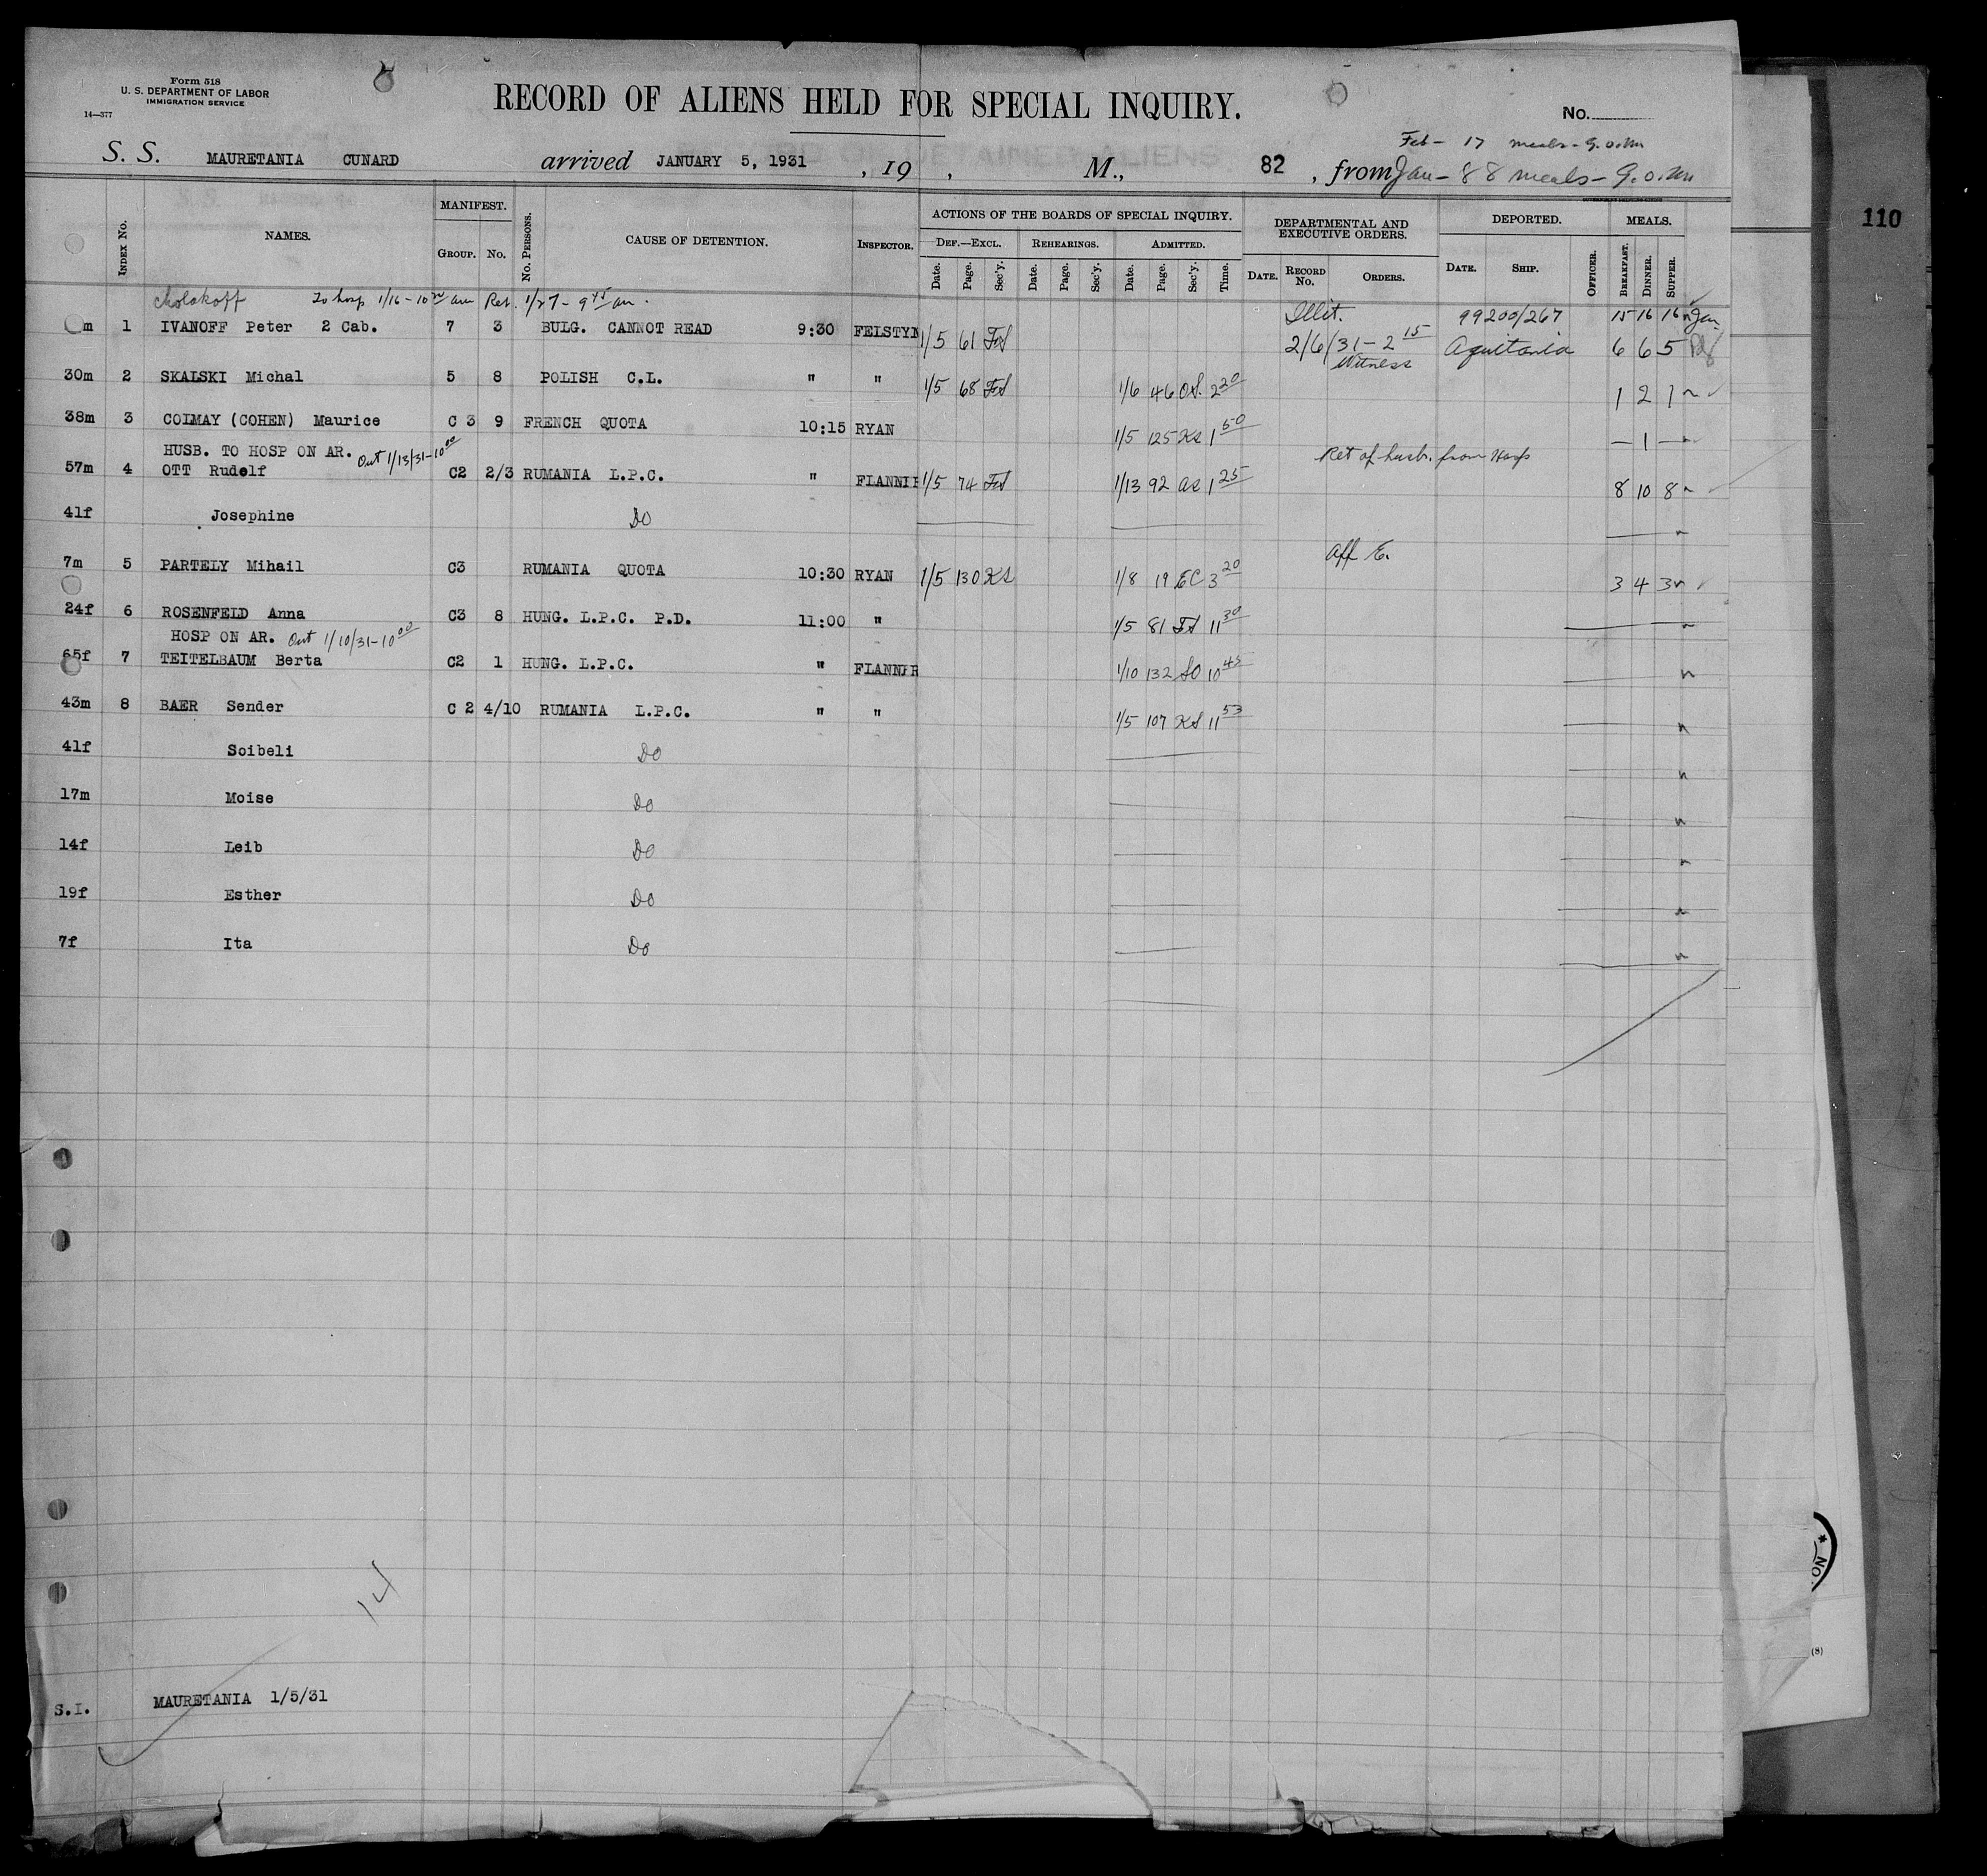 Form 518
U. S. DEPARTMENT OF LABOR
IMMIGRATION SERVICE
14—377
RECORD OF ALIENS HELD FOR SPECIAL INQUIRY.
No.
Feb - 17 meals - G.O.M
S. S. MAURETANIA CUNARD arrived JANUARY 5, 1931 , 19 , M., 82 , from Jan - 88 meals - G.O.M
110
INDEX No. NAMES. MANIFEST. GROUP. No. No. PERSONS. CAUSE OF DETENTION. INSPECTOR. ACTIONS OF THE BOARDS OF SPECIAL INQUIRY. DEF.—EXCL. REHEARINGS. ADMITTED. DEPARTMENTAL AND EXECUTIVE ORDERS. DEPORTED. MEALS.
Date. Page. Sec'y. Date. Page. Sec'y. Date. Page. Sec'y. Time. DATE. RECORD No. ORDERS. DATE. SHIP. OFFICER. BREAKFAST. DINNER. SUPPER.
Cholakoff To hosp 1/16 - 10 am Ret. 1/27 - 9 45 am.
Illit. 99200/267 15 16 16 Jan
m 1 IVANOFF Peter 2 Cab. 7 3 BULG. CANNOT READ 9:30 FELSTYN 1/5 61
2/6/31 - 2 15 Aquitania 6 6 5
Witness
30m 2 SKALSKI Michal 5 8 POLISH C.L. " " 1/5 68 1/6 46 OS. 2 20 1 2 1
38m 3 COLMAY (COHEN) Maurice C 3 9 FRENCH QUOTA 10:15 RYAN 1/5 125 KS 1 50 — 1 —
HUSB. TO HOSP ON AR. Out 1/13/31 - 10 00
Ret of husb. from Hosp
57m 4 OTT Rudolf C2 2/3 RUMANIA L.P.C. " FLANNIE 1/5 74 1/13 92 as 1 25 8 10 8
41f Josephine Do
Aff E.
7m 5 PARTELY Mihail C3 RUMANIA QUOTA 10:30 RYAN 1/5 130 KS 1/8 19 EC 3 20 3 4 3
24f 6 ROSENFELD Anna C3 8 HUNG. L.P.C. P.D. 11:00 " 1/5 81 11 30
HOSP ON AR. Out 1/10/31 - 10 00
65f 7 TEITELBAUM Berta C2 1 HUNG. L.P.C. " 1/10 132 SO 10 45
43m 8 BAER Sender C 2 4/10 RUMANIA L.P.C. " " 1/5 107 KS 11 53
41f Soibeli Do
17m Moise Do
14f Leib Do
19f Esther Do
7f Ita Do
14
S.I. MAURETANIA 1/5/31
* NO.
(8)